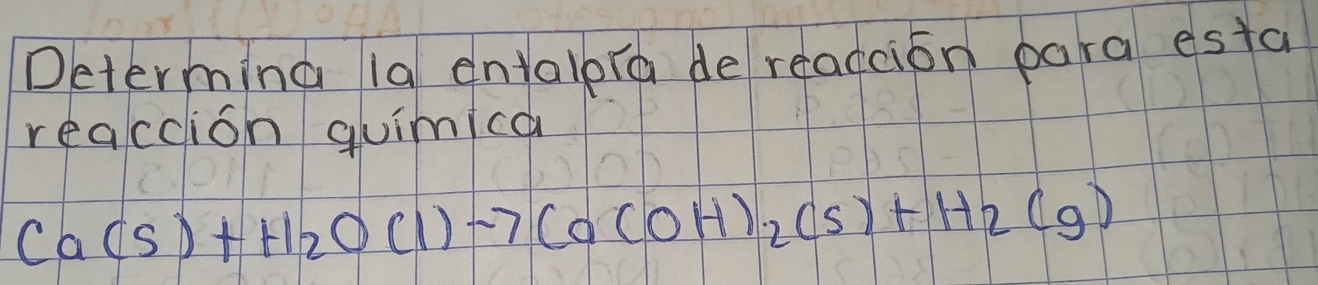 Determina la entalpía de reacción para esta
reacción química
Ca(s)+H2O(l)→Ca(OH)2(s)+H2(g)